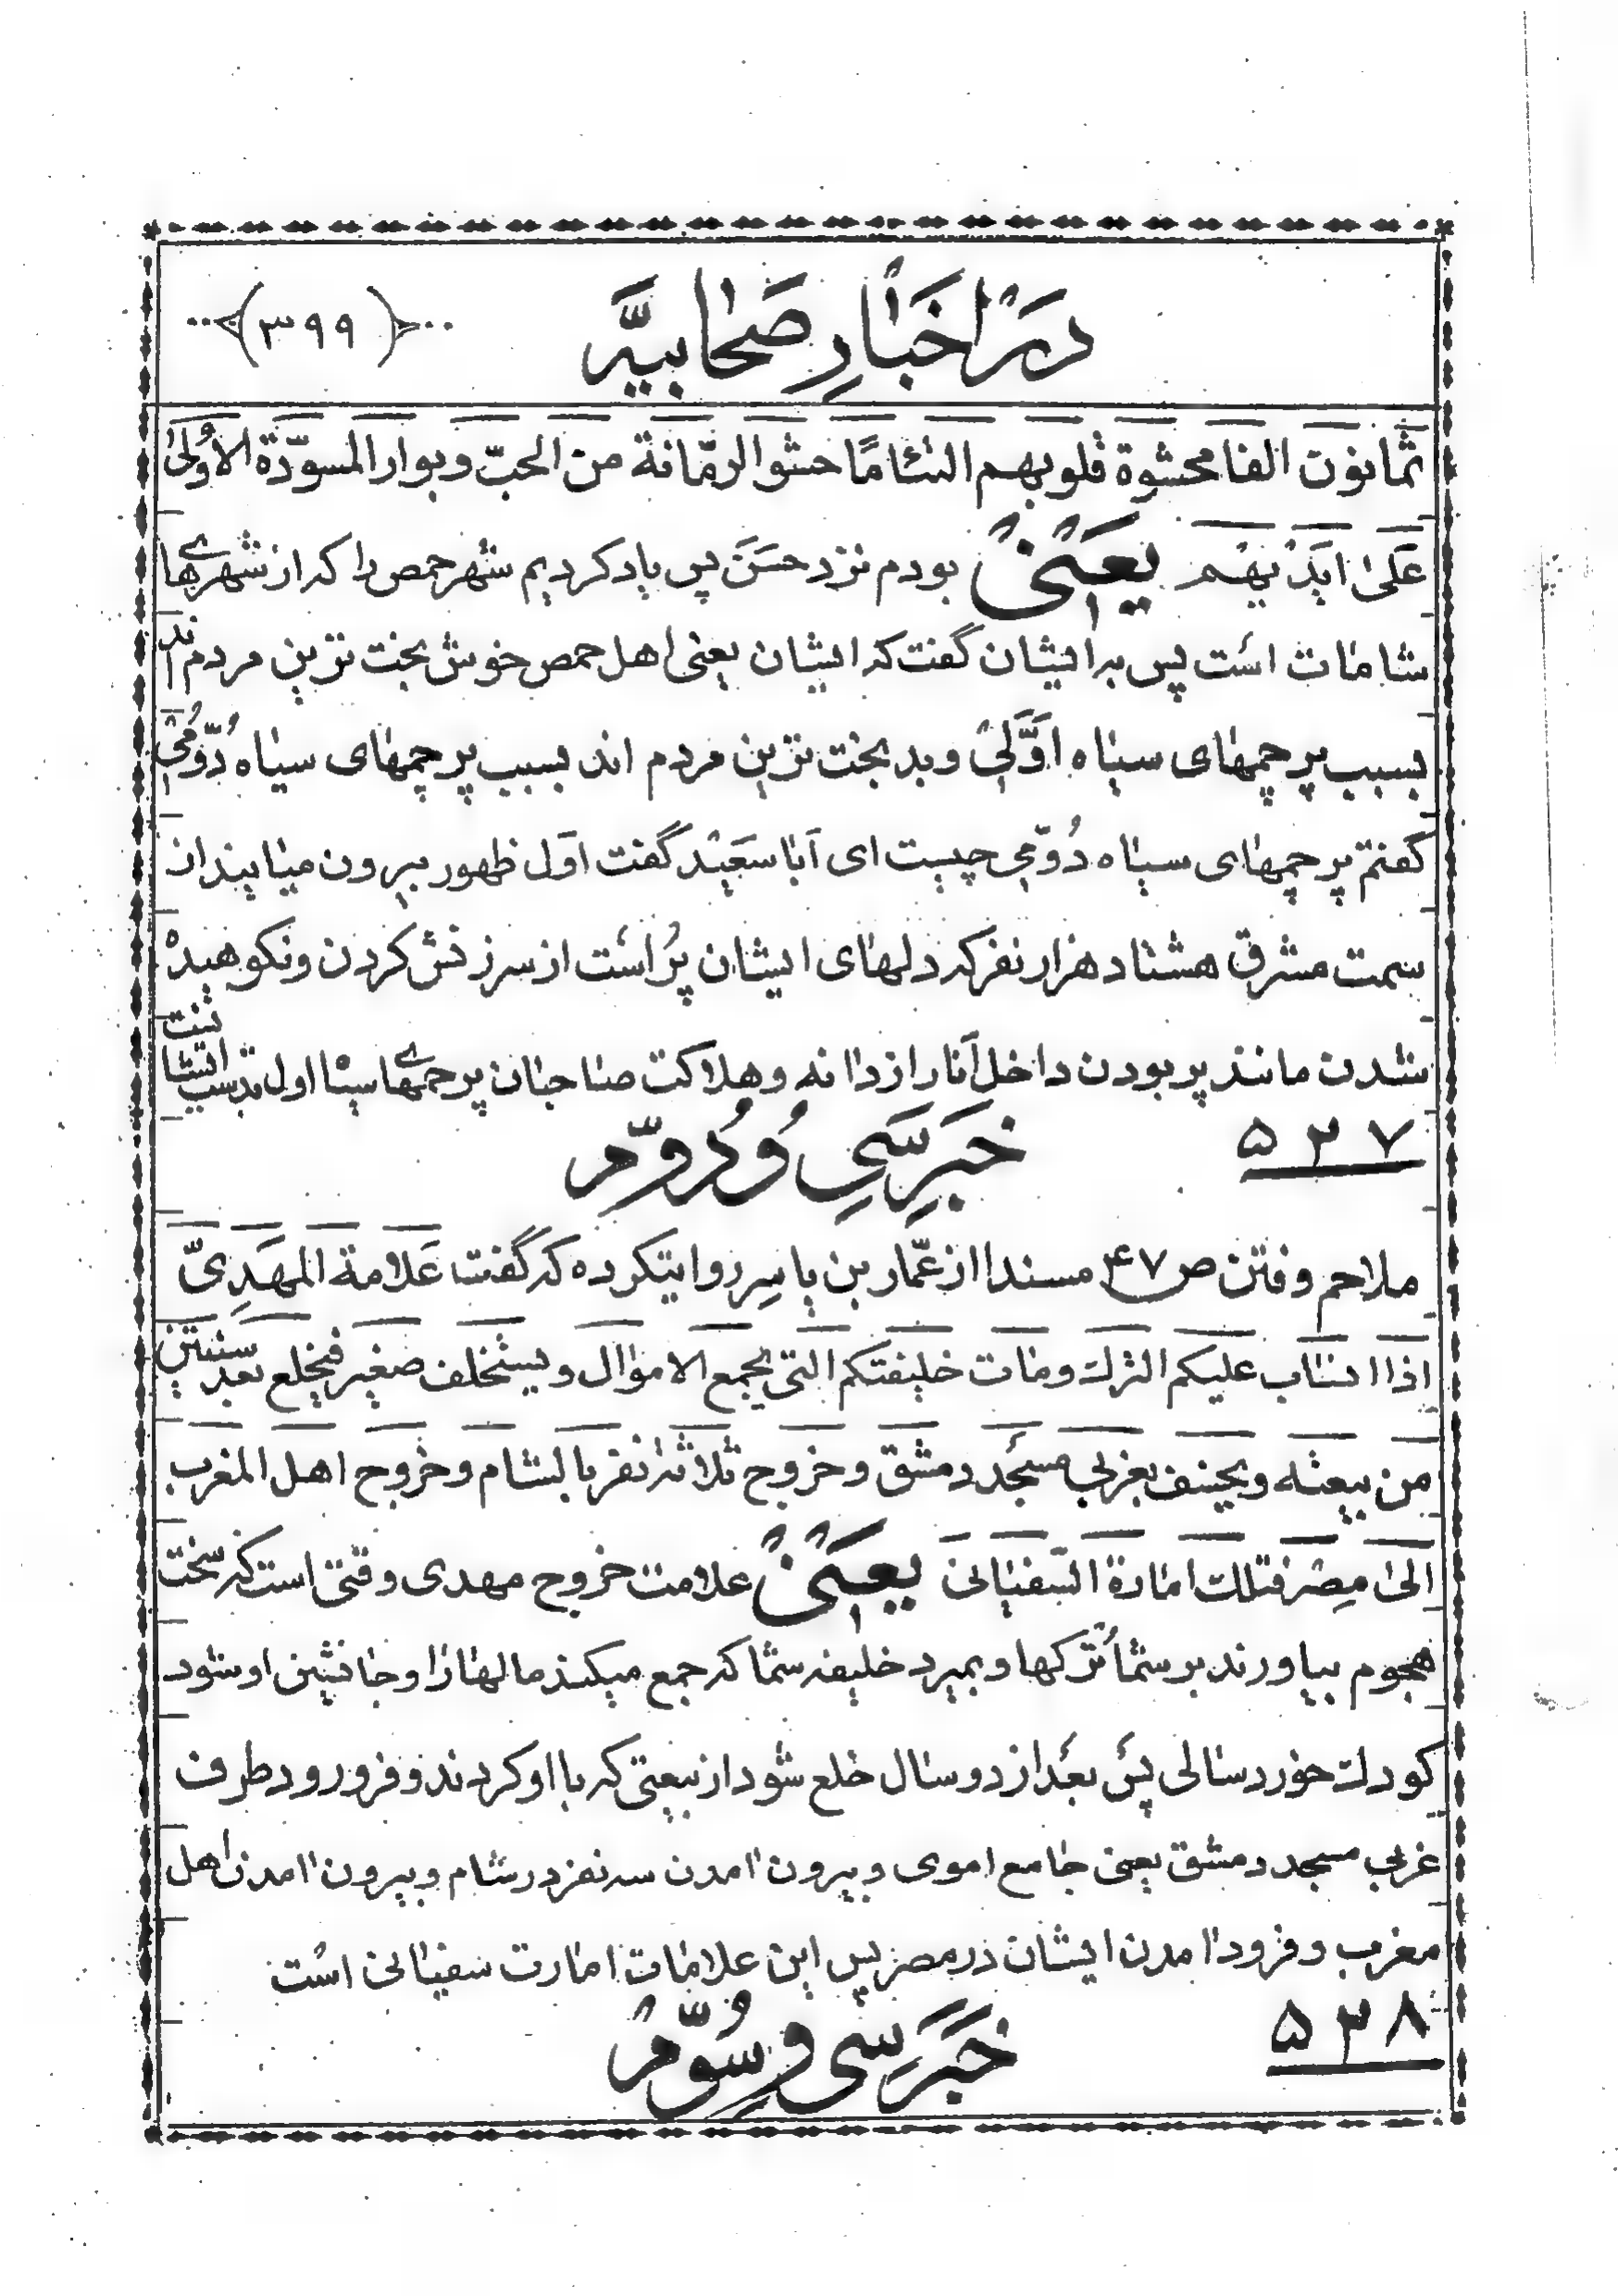 در اخبار صحابیه (۳۹۹)
ثمانون الفا محشوة قلوبهم التئاما حشو الرمّانة من الحبّ و بوار المسوّدة الاولی
عَلیٰ ایَدْیهْم یعَنیْ بودم نزد حسَنَ پس یاد کردیم شهر حمص را که از شهرهای
شامات است پس به ایشان گفت که ایشان یعنی اهل حمص خوش بخت ترین مردم اند
بسبب پرچمهای سیاه اَوَّلیْ و بدبخت ترین مردم اند بسبب پرچمهای سیاه دُوّمُیْ
گفتم پرچمهای سیاه دُوّمی چیست ای اَبا سَعَیْد گفت اوّل ظهور بیرون میایند از
سمت مشرق هشتاد هزار نفر که دلهای ایشان پُر است از سرزنش کردن و نکوهیده
شدن مانند پر بودن داخل اَنار از دانه و هلاکت صاحبان پرچمهای سیاه اول بدست ایشانست
۵۳۷ خبَرِ سَیِ وُ دُوّم
ملاحم و فتن ص ۴۷ مسندا از عمّار بن یاسِر روایتکرده که گفت عَلامة المهَدِیّ
اذا انساب علیکم الترک و مات خلیفتکم التی یجمع الاموال و یستخلف صغیر فیخلع بعد سنتین
من بیعته و یخسف بغربی مسجد دمشق و خروج ثلاثة نفر بالشام و خروج اهل المغرب
الیٰ مِصْر فتلک امارة السّفیانی یعَنیْ علامت خروج مهدی وقتی است که سخت
هجوم بیاورند بر شما تُرکها و بمیرد خلیفه شما که جمع میکند مالها را و جانشین او شود
کودک خورد سالی پسَ بعَد از دو سال خلع شود از بیعتی که با او کردند و فرو رود طرف
غربی مسجد دمشق یعنی جامع اموی و بیرون امدن سه نفر در شام و بیرون امدن اهل
مغرب و فرود امدن ایشان در مصر پس این علامات امارت سفیانی است
۵۳۸ خبَرَ سِی وِ سُوّم